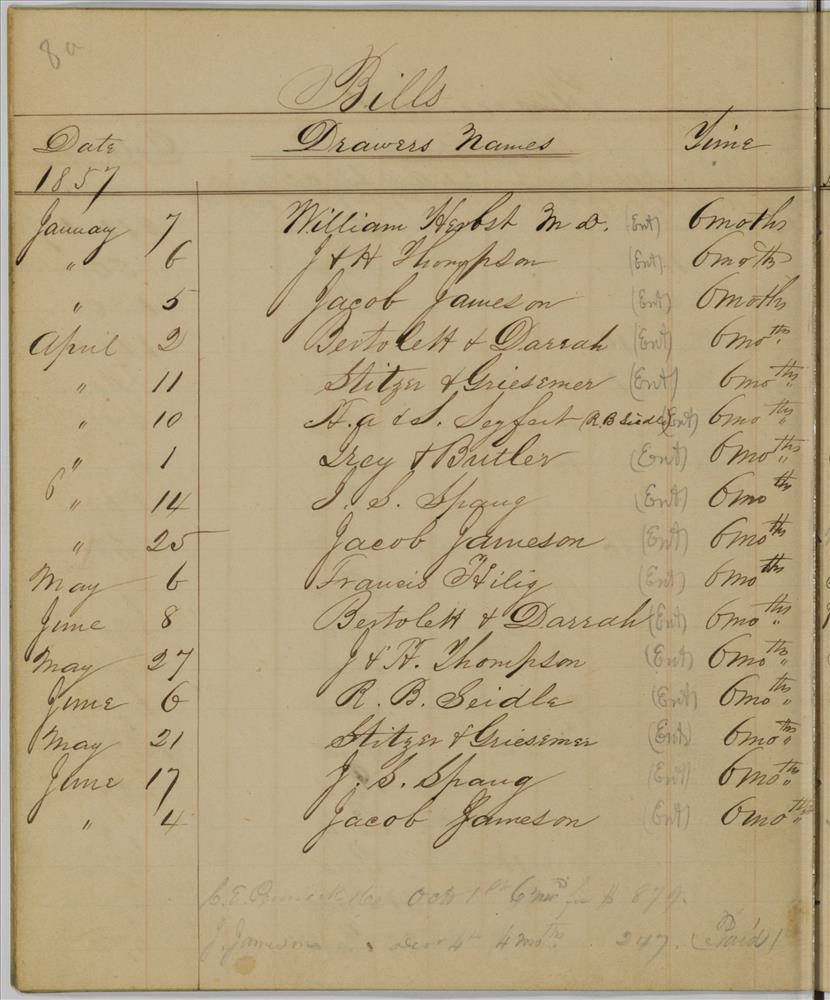 8a
Bills
Date Drawers Names Time
1857
Januay 7 William Herbst M D. (Ent) 6moths
" 6 J & H Thompson (Ent) 6moths
" 5 Jacob Jameson (Ent) 6moths
April 2 Bertolett & Darrah (Ent) 6moths
" 11 Stitzer & Griesemer (Ent) 6moths
" 10 H. a & S. Seyfert (R B Siedle) (Ent) 6moths
" 1 Irey & Butler (Ent) 6moths
6 " 14 J. S. Spaug (Ent) 6moths
" 25 Jacob Jameson (Ent) 6moths
May 6 Francis Hilig (Ent) 6moths
June 8 Bertolett & Darrah (Ent) 6moths
May 27 J & H. Thompson (Ent) 6moths
June 6 R. B. Seidle (Ent) 6moths
May 21 Stitzer & Griesemer (Ent) 6moths
June 17 J. S. Spaug (Ent) 6moths
" 4 Jacob Jameson (Ent) 6moths
C. E. Octo 1st 6 mos for $ 879.
J. Jameson 4th 4 moths 247. (Paid)